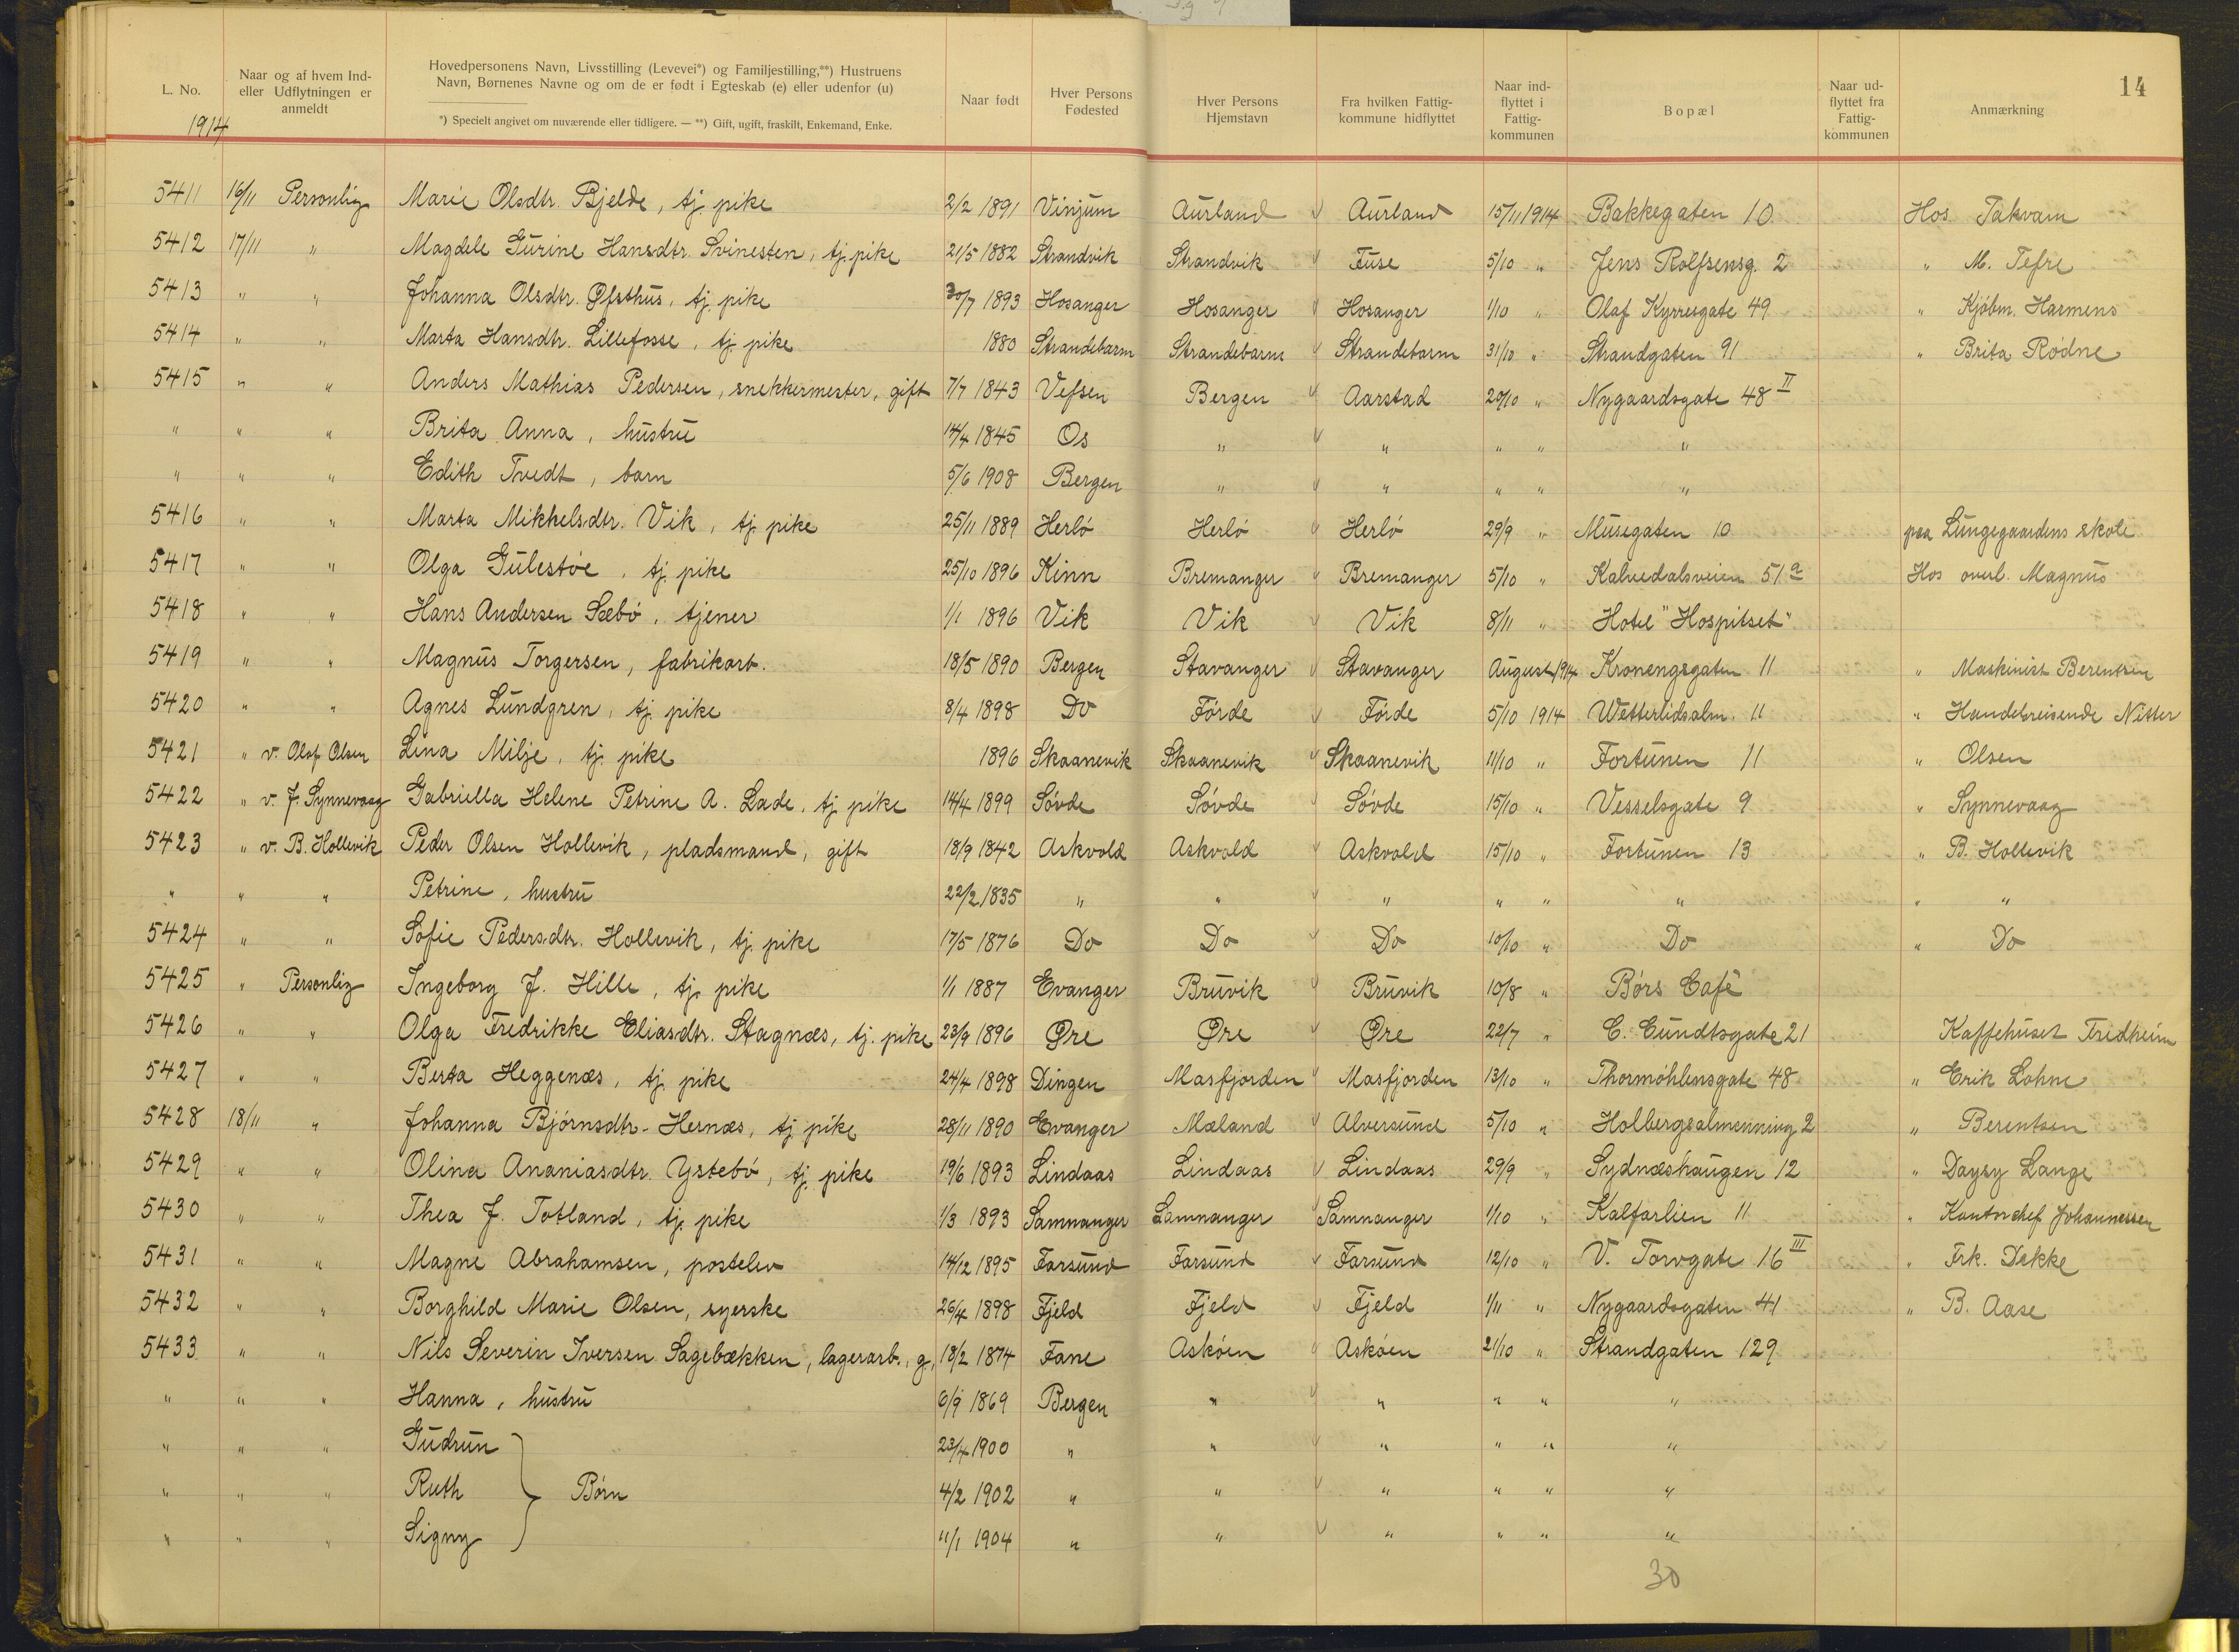 14
L. No. | Naar og af hvem Ind- eller Udflytningen er anmeldt | Hovedpersonens Navn, Livsstilling (Levevei*) og Familjestilling,**) Hustruens Navn, Børnenes Navne og om de er født i Egteskab (e) eller udenfor (u) | Naar født | Hver Persons Fødested | Hver Persons Hjemstavn | Fra hvilken Fattig-kommune hidflyttet | Naar ind-flyttet i Fattig-kommunen | Bopæl | Naar ud-flyttet fra Fattig-kommunen | Anmærkning
*) Specielt angivet om nuværende eller tidligere. — **) Gift, ugift, fraskilt, Enkemand, Enke.
1914
5411 16/11 Personlig Marie Olsdtr. Bjelde, tj. pike 2/2 1891 Vinjum Aurland Aurland 15/11 1914 Bakkegaten 10 Hos Takvam
5412 17/11 " Magdele Gurine Hansdtr. Svinesten, tj. pike 21/5 1882 Strandvik Strandvik Fuse 5/10 " Jens Rolfsensg. 2 " M. Tefre
5413 " " Johanna Olsdtr. Øfsthus, tj. pike 30/7 1893 Hosanger Hosanger Hosanger 1/10 " Olaf Kyrresgate 49 " Kjøbm. Harmens
5414 " " Marta Hansdtr. Lillefosse, tj. pike 1880 Strandebarm Strandebarm Strandebarm 31/10 " Strandgaten 91 " Brita Rødne
5415 " " Anders Mathias Pedersen, snekkermester, gift 7/7 1843 Vefsen Bergen Aarstad 20/10 " Nygaardsgate 48 II
" " " Brita Anna, hustru 14/4 1845 Os " " " " "
" " " Edith Tvedt, barn 5/6 1908 Bergen " " " " "
5416 " " Marta Mikkelsdtr. Vik, tj. pike 25/11 1889 Herlö Herlö Herlö 29/9 " Musegaten 10 paa Lungegaardens skole
5417 " " Olga Gulestöe, tj. pike 25/10 1896 Kinn Bremanger Bremanger 5/10 " Kalvedalsveien 51 a Hos overl. Magnus
5418 " " Hans Andersen Sæbö, tjener 1/1 1896 Vik Vik Vik 8/11 " Hotel "Hospitset"
5419 " " Magnus Torgersen, fabrikarb. 18/5 1890 Bergen Stavanger Stavanger August 1914 Kronengsgaten 11 " Maskinist Berentsen
5420 " " Agnes Lundgren, tj. pike 8/4 1898 Do Förde Förde 5/10 1914 Wetterlidsalm. 11 " Handelsreisende Nitter
5421 " v. Olaf Olsen Lina Milje, tj. pike 1896 Skaanevik Skaanevik Skaanevik 11/10 " Fortunen 11 " Olsen
5422 " v. J. Synnevaag Gabriella Helene Petrine A. Lade, tj. pike 14/4 1899 Sövde Sövde Sövde 15/10 " Vesselsgate 9 " Synnevaag
5423 " v. B. Hollevik Peder Olsen Hollevik, pladsmand, gift 18/9 1842 Askvold Askvold Askvold 15/10 " Fortunen 13 " B. Hollevik
" " " Petrine, hustru 22/2 1835 " " " " " " " "
5424 " " Sofie Pedersdtr. Hollevik, tj. pike 17/5 1876 Do Do Do 10/10 " Do " Do
5425 " Personlig Ingeborg J. Hille, tj. pike 1/1 1887 Evanger Bruvik Bruvik 10/8 " Börs Café
5426 " " Olga Fredrikke Eliasdtr. Stagnæs, tj. pike 23/9 1896 Øre Øre Øre 22/7 " C. Cundtsgate 21 Kaffehuset Fredheim
5427 " " Berta Heggenæs, tj. pike 24/4 1898 Dingen Masfjorden Masfjorden 13/10 " Thormöhlensgate 48 " Erik Lohne
5428 18/11 " Johanna Björnsdtr. Hernæs, tj. pike 28/11 1890 Evanger Mæland Alversund 5/10 " Holbergsalmenning 2 " Berentsen
5429 " " Olina Ananiasdtr. Ystebö, tj. pike 19/6 1893 Lindaas Lindaas Lindaas 29/9 " Sydnæshaugen 12 " Daysy Lange
5430 " " Thea J. Totland, tj. pike 1/3 1893 Samnanger Samnanger Samnanger 1/10 " Kalfarlien 11 " Kontorchef Johannessen
5431 " " Magne Abrahamsen, postelev 14/12 1895 Farsund Farsund Farsund 12/10 " V. Torvgate 16 III " Frk. Dekke
5432 " " Borghild Marie Olsen, syerske 26/4 1898 Fjeld Fjeld Fjeld 1/11 " Nygaardsgaten 41 " B. Aase
5433 " " Nils Severin Iversen Sagebækken, lagerarb., g. 18/2 1874 Fane Asköen Asköen 21/10 " Strandgaten 129
" " " Hanna, hustru 6/9 1869 Bergen " " " " "
" " " Gudrun 23/4 1900 " " " " " "
" " " Ruth } Börn 4/2 1902 " " " " " "
" " " Signy 11/1 1904 " " " " " "
30